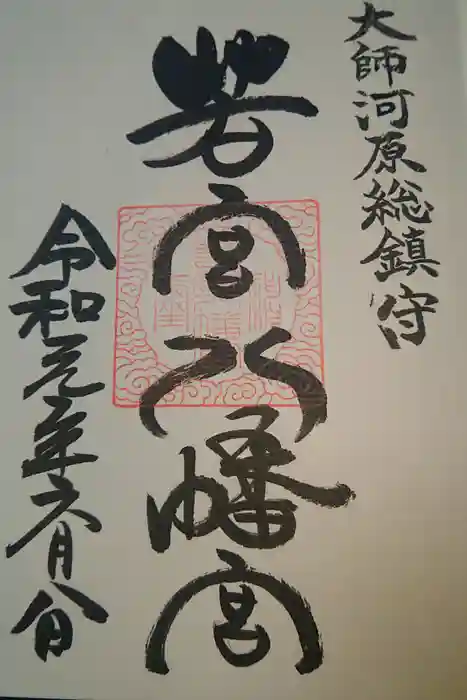 大師河原総鎮守
若宮八幡宮
令和元年六月八日